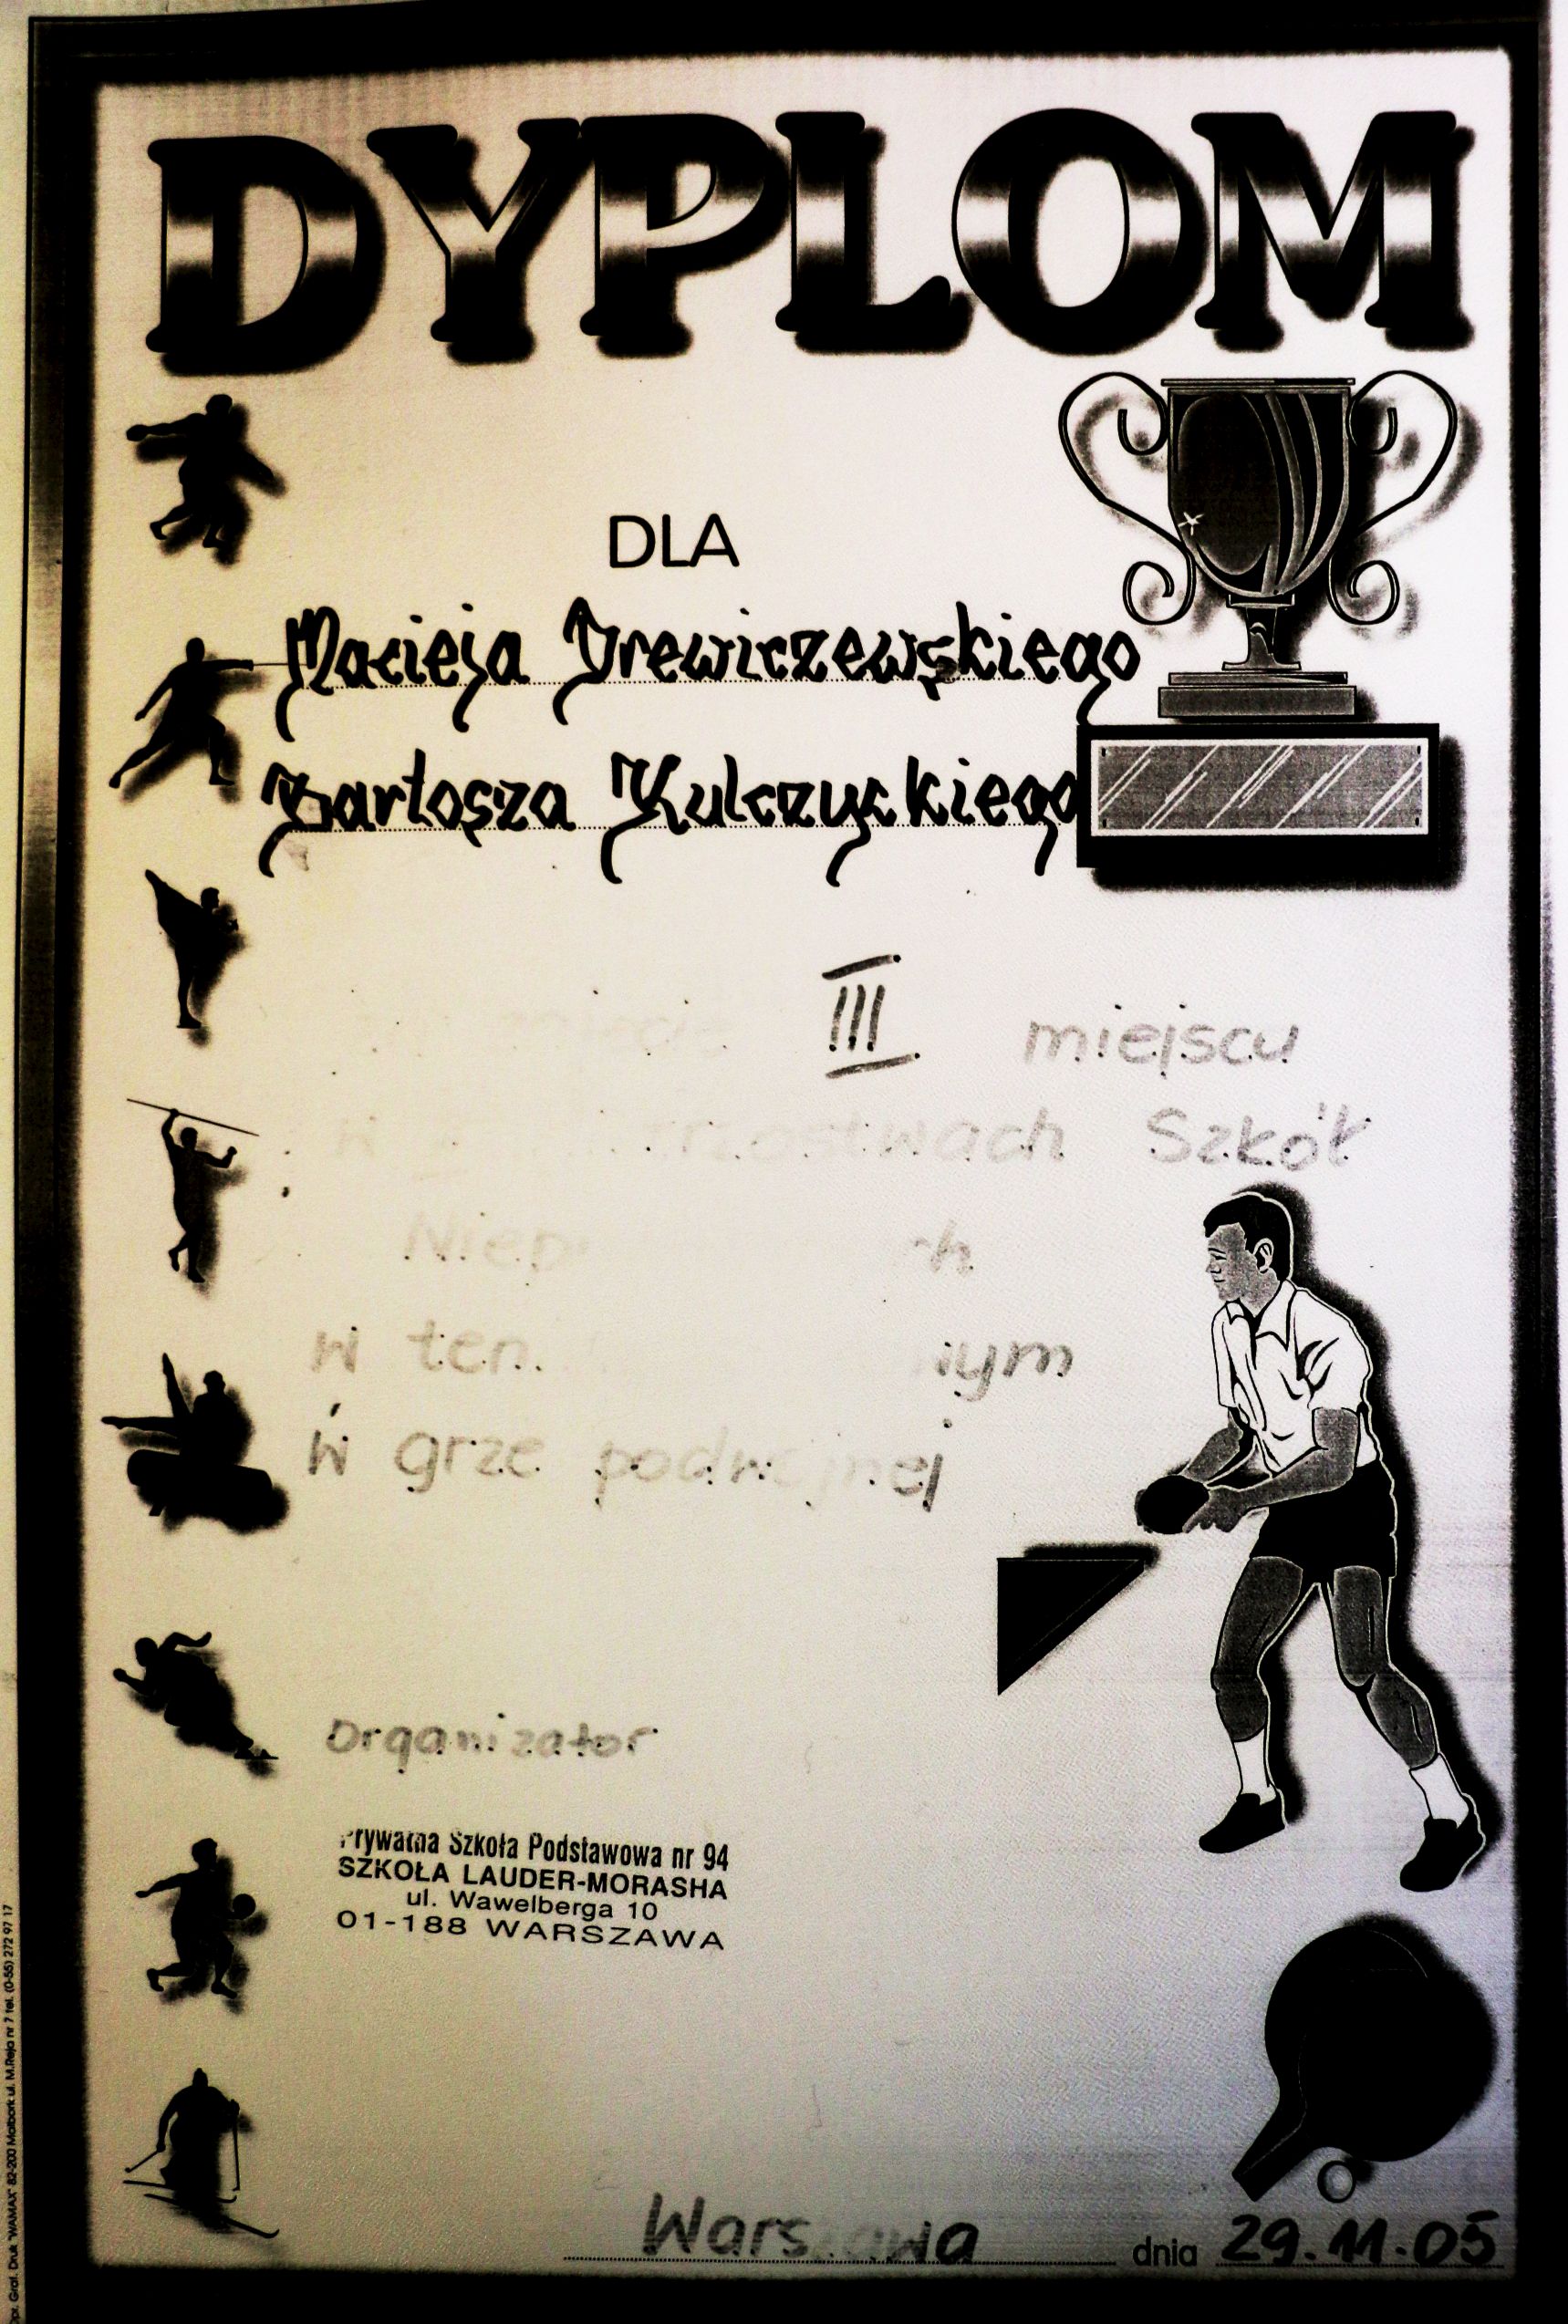 DYPLOM
DLA
Macieja Drewiczewskiego
Bartosza Kulczyckiego
III miejscu
Szkół
w
w grze podwójnej
Organizator
Prywatna Szkoła Podstawowa nr 94
SZKOŁA LAUDER-MORASHA
ul. Wawelberga 10
01-188 WARSZAWA
Warszawa dnia 29.11.05
Opr. Graf. Druk "WAMAX" 82-200 Malbork ul. M.Reja nr 7 tel. (0-55) 272 97 17